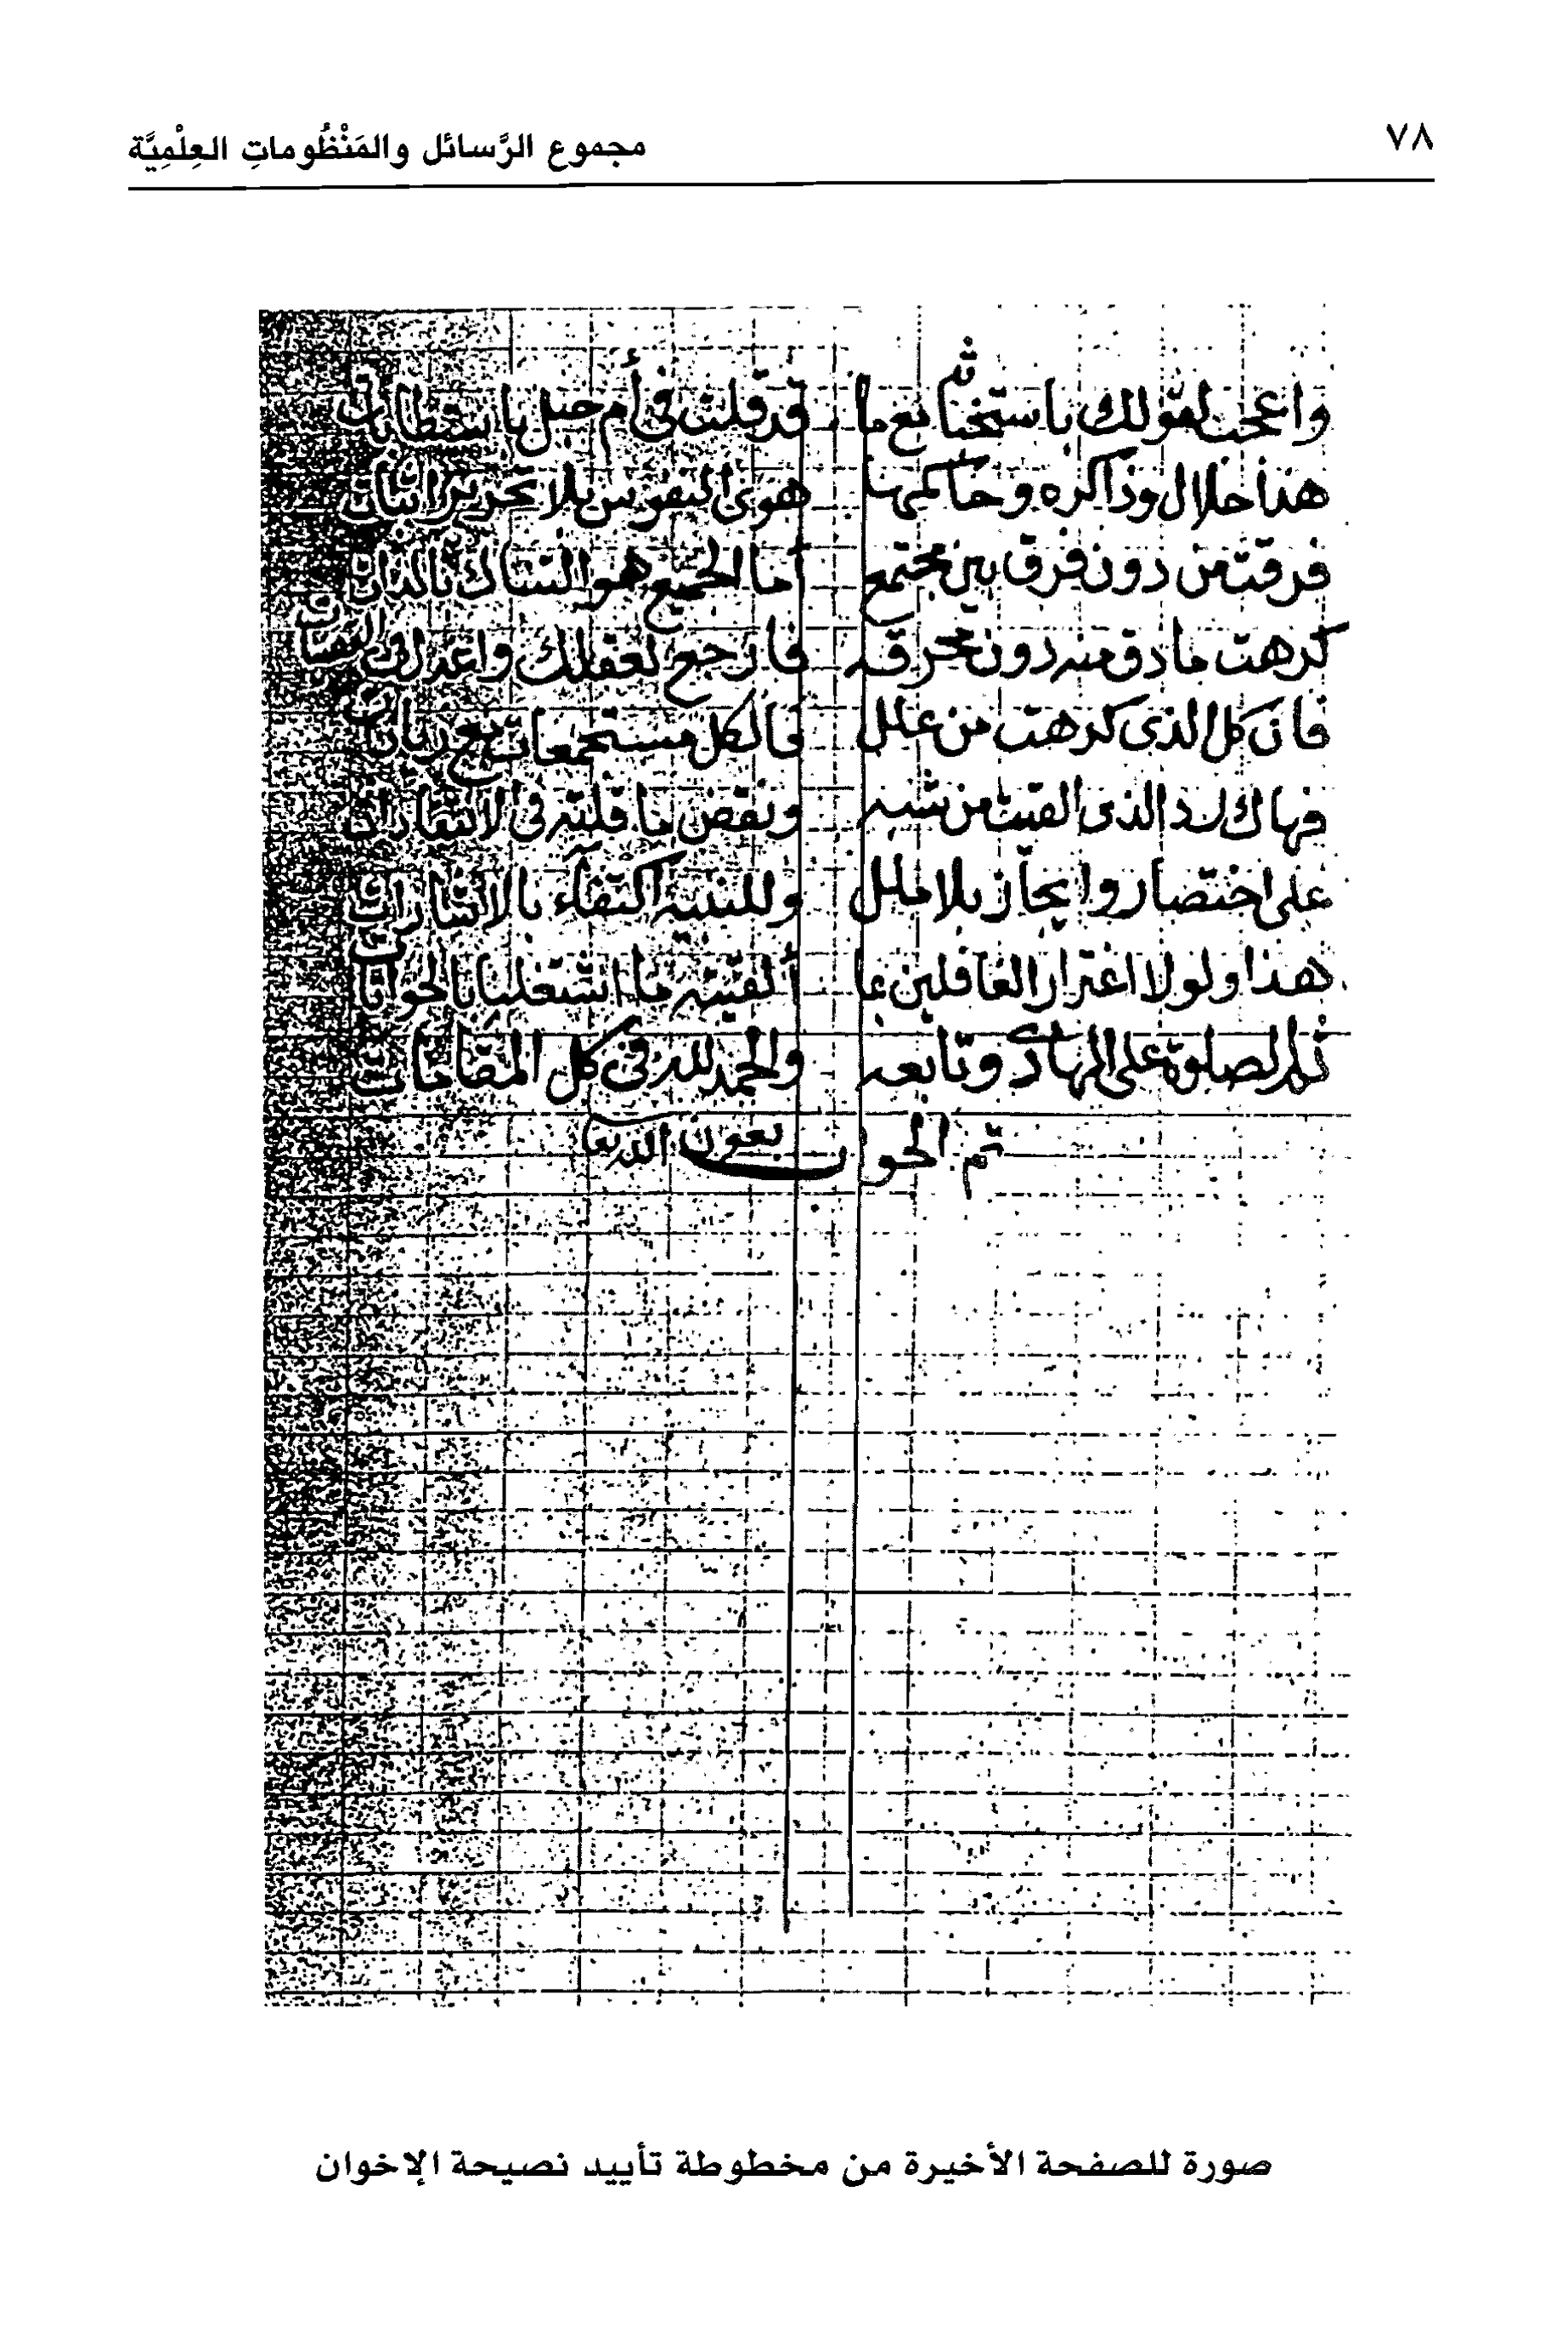 ٧٨
مجموع الرَّسائل والمَنْظُوماتِ العِلْمِيَّة
واعجب لقولك باستخباثه مع ما قد قلت في أم حبل باسقطابات
هذا حلال وذا كره وحاكمها هوى النفوس بلا تحرير اثبات
فرقت من دون فرق بين مجتمع أما الجميع هو التنباك بالذات
كرهت ما دق منه دون محرقه فارجع لعقلك واعدل في
فان كل الذي كرهت من علل فالكل مستجمعات مع زيادات
فهاك رد الذي القيت من شبه ونقض ما قلته في الانتقادات
على اختصار وايجاز بلا ملل وللنبيه اكتفاء بالاشارات
هذا ولولا اغترار الغافلين بما ألقيته ما اشتغلنا بالجوابات
ثم الصلوة على الهادي وتابعه والحمد لله في كل المقامات
تم الجواب بعون الله تعا
صورة للصفحة الأخيرة من مخطوطة تأييد نصيحة الإخوان